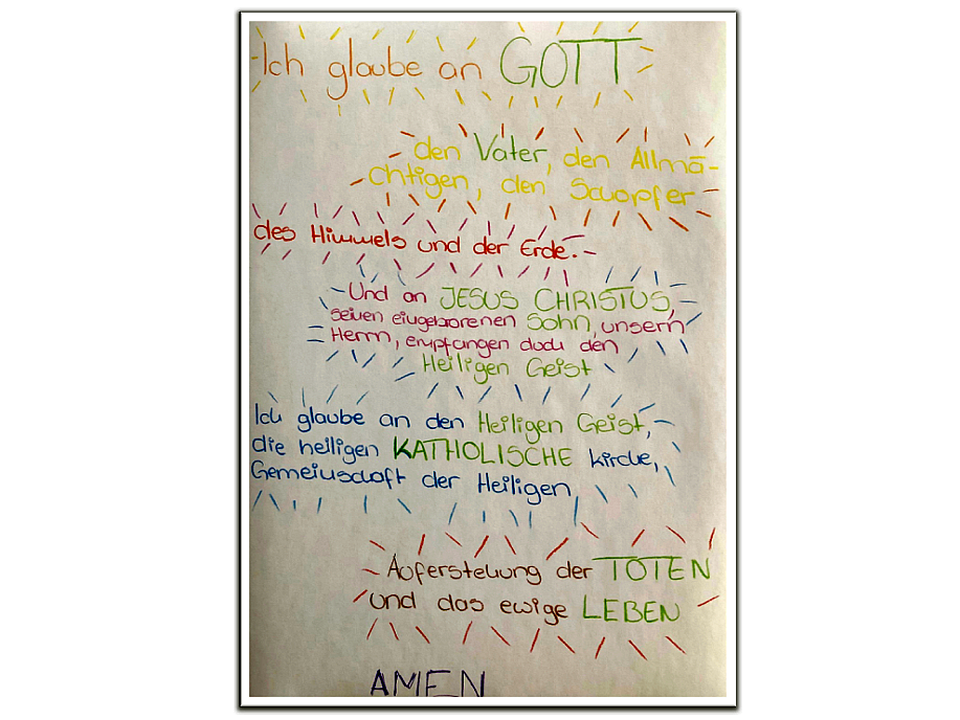 Ich glaube an GOTT
den Vater, den Allmä-
chtigen, den Schöpfer
des Himmels und der Erde.
Und an JESUS CHRISTUS,
seinen eingeborenen Sohn, unsern
Herrn, empfangen duch den
Heiligen Geist
Ich glaube an den Heiligen Geist,
die heiligen KATHOLISCHE kirche,
Gemeinschaft der Heiligen,
Auferstehung der TOTEN
und das ewige LEBEN
AMEN